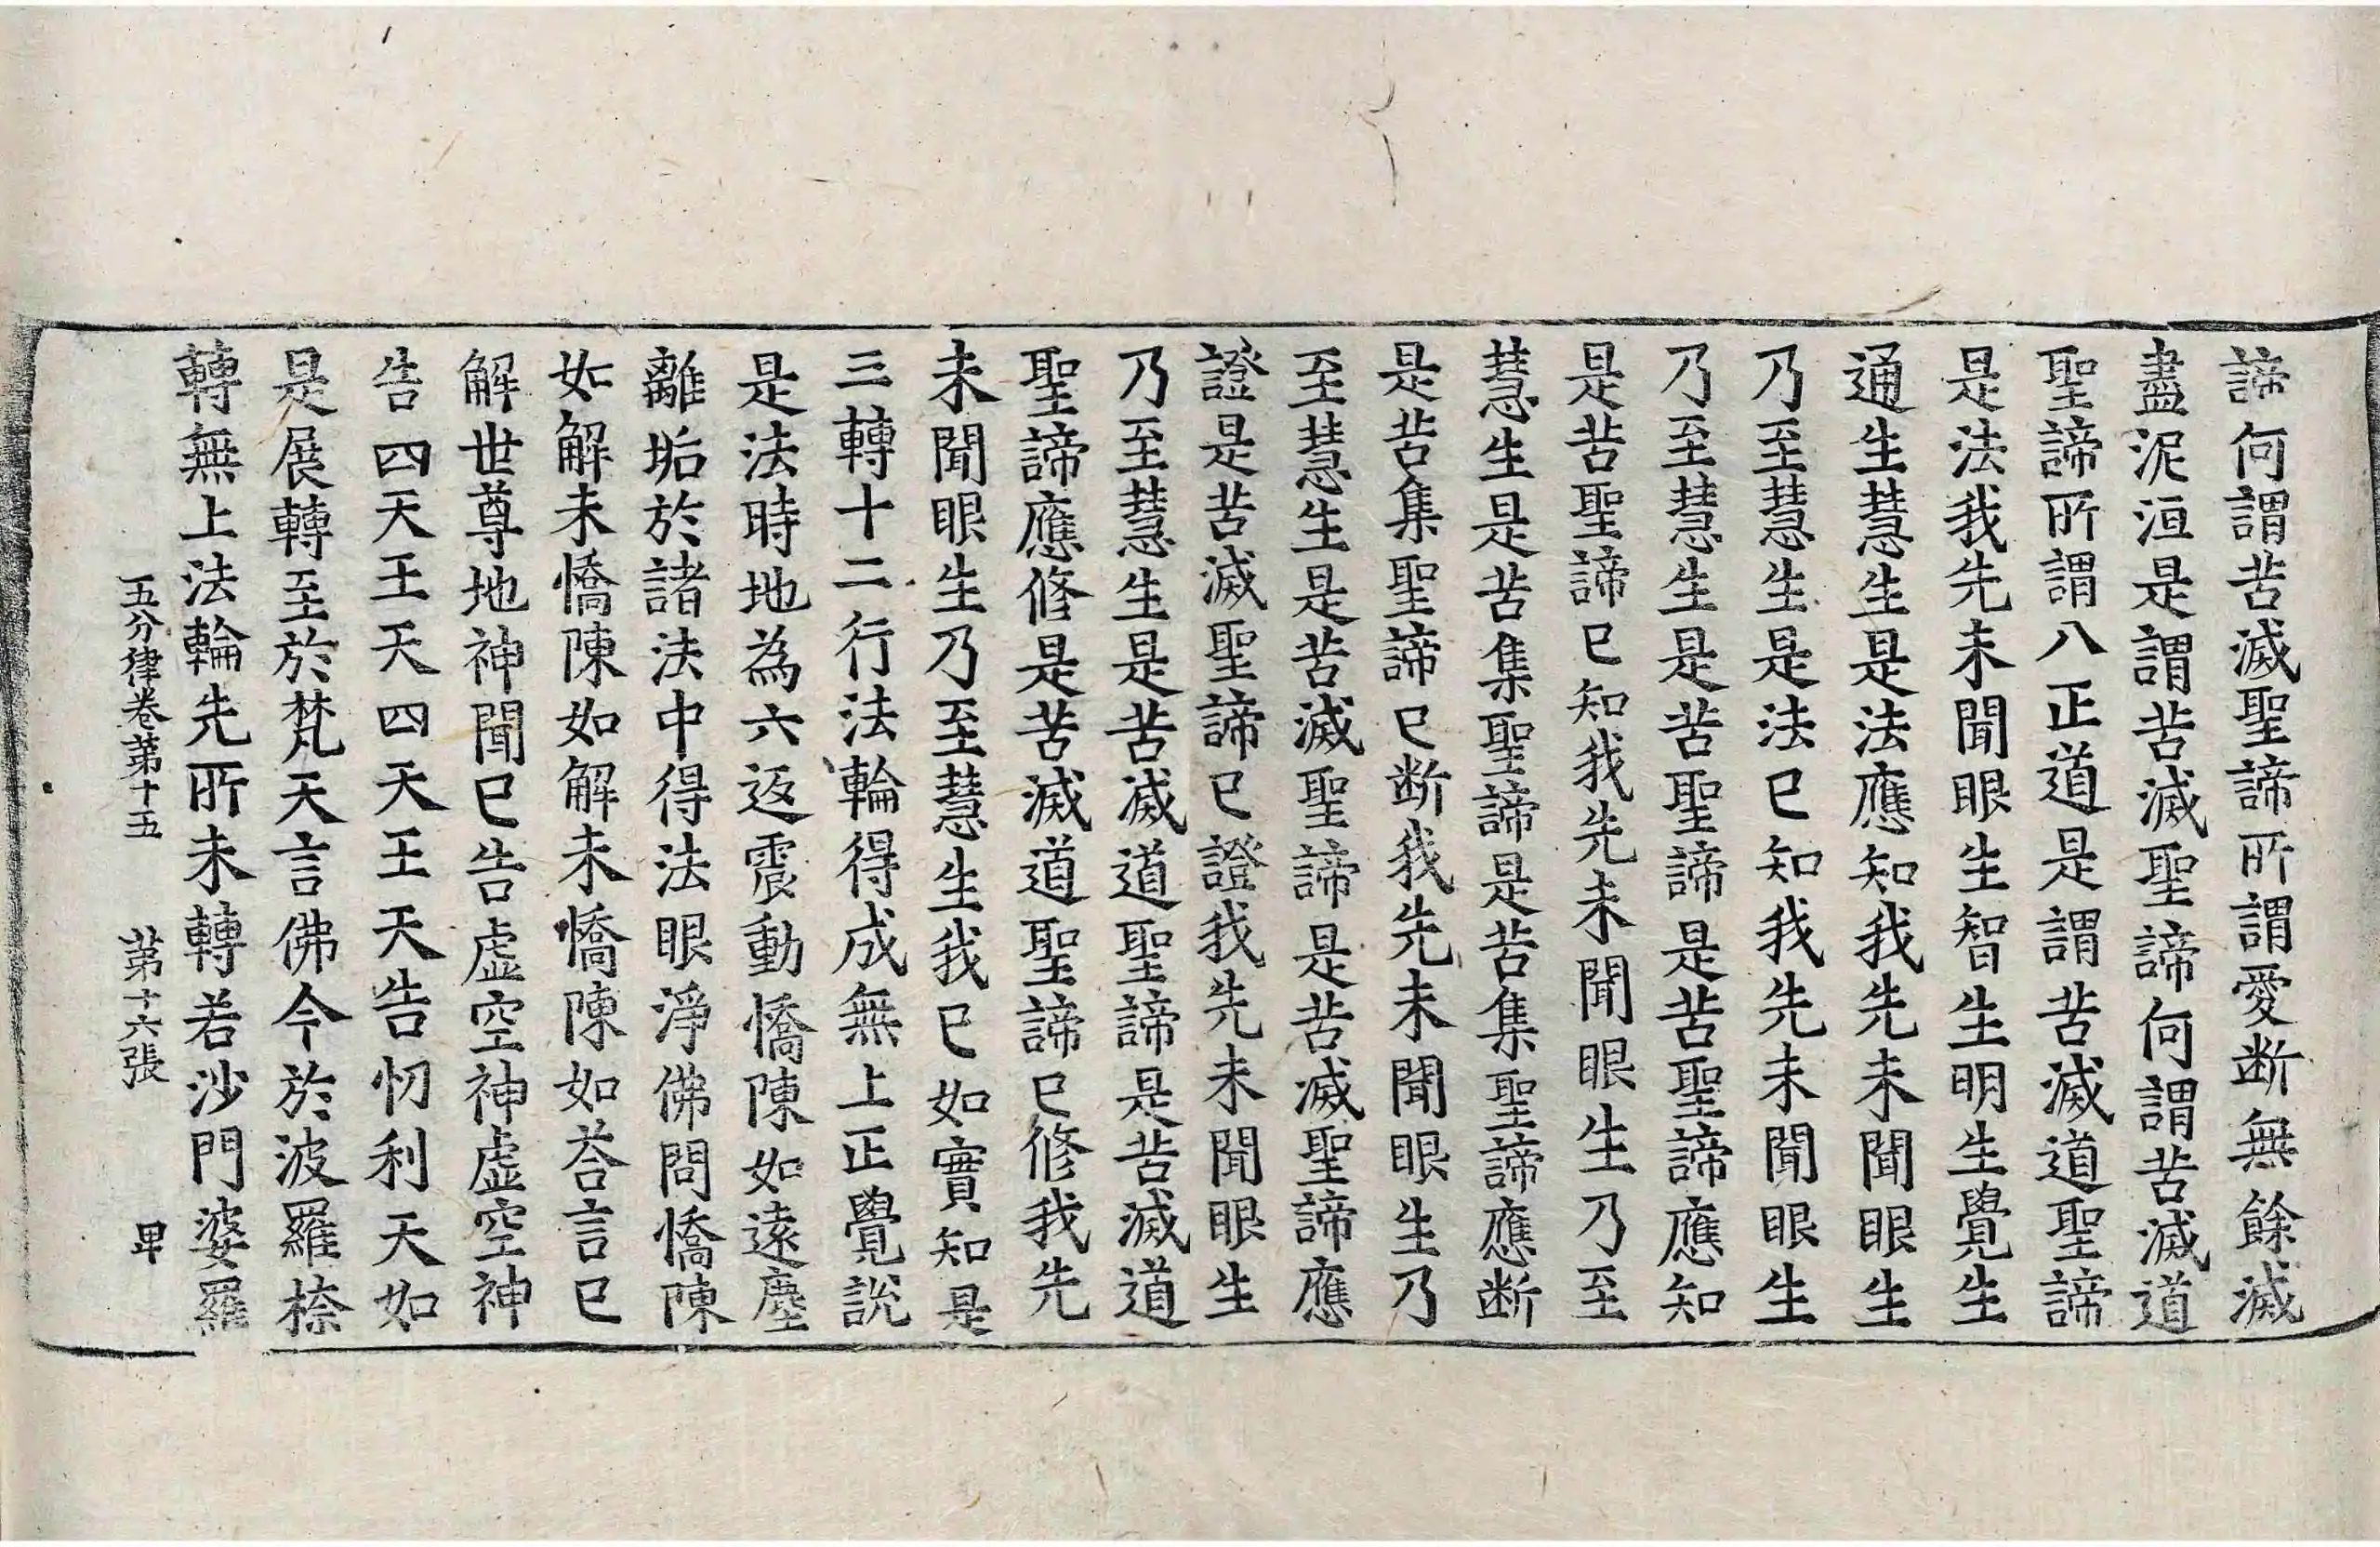 諦何謂苦滅聖諦所謂愛断無餘滅
盡泥洹是謂苦滅聖諦何謂苦滅道
聖諦所謂八正道是謂苦滅道聖諦
是法我先未聞眼生智生明生覺生
通生慧生是法應知我先未聞眼生
乃至慧生是法已知我先未聞眼生
乃至慧生是苦聖諦是苦聖諦應知
是苦聖諦已知我先未聞眼生乃至
慧生是苦集聖諦是苦集聖諦應断
是苦集聖諦已断我先未聞眼生乃
至慧生是苦滅聖諦是苦滅聖諦應
證是苦滅聖諦已證我先未聞眼生
乃至慧生是苦滅道聖諦是苦滅道
聖諦應修是苦滅道聖諦已修我先
未聞眼生乃至慧生我已如實知是
三轉十二行法輪得成無上正覺說
是法時地為六返震動憍陳如遠塵
離垢於諸法中得法眼淨佛問憍陳
如解未憍陳如解未憍陳如荅言已
解世尊地神聞已告虛空神虛空神
告四天王天四天王天告忉利天如
是展轉至於梵天言佛今於波羅㮈
轉無上法輪先所未轉若沙門婆羅
五分律卷第十五 第十六張 卑